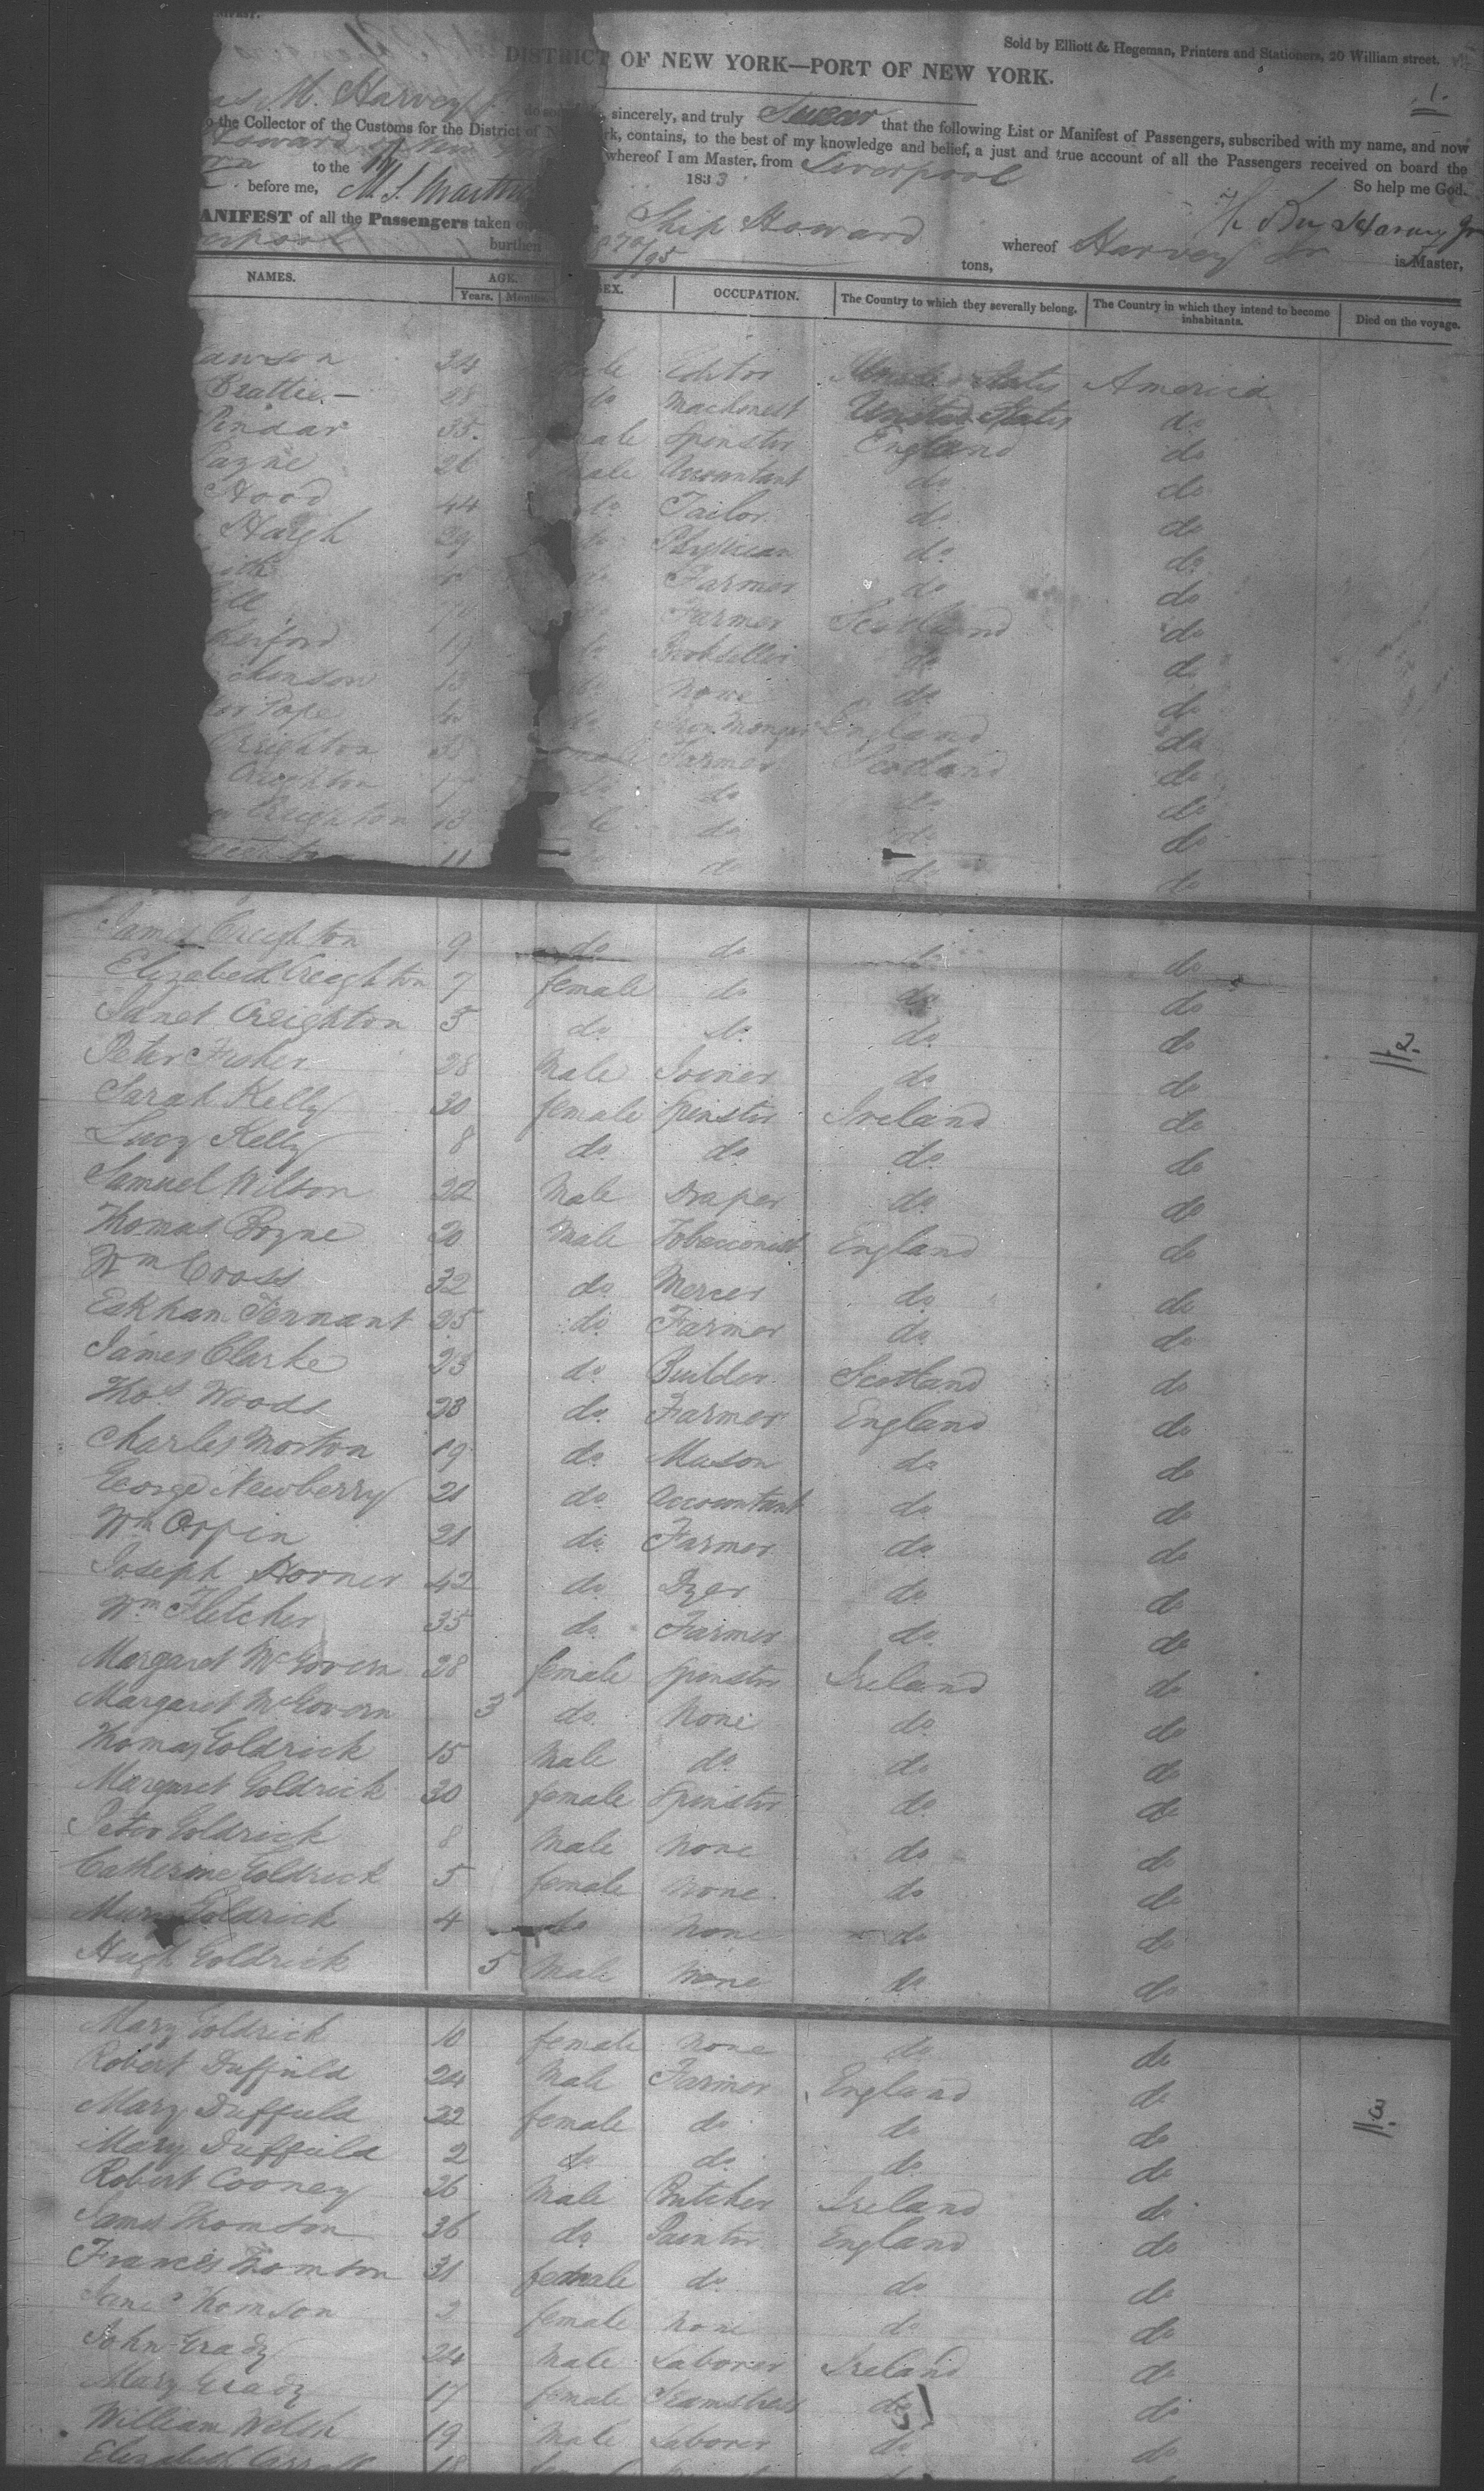 MANIFEST.
Sold by Elliott & Hegeman, Printers and Stationers, 20 William street.
DISTRICT OF NEW YORK—PORT OF NEW YORK.
1.
M. Harvey do sincerely, and truly Swear that the following List or Manifest of Passengers, subscribed with my name, and now
to the Collector of the Customs for the District of New York, contains, to the best of my knowledge and belief, a just and true account of all the Passengers received on board the
Howard whereof I am Master, from Liverpool
to the
So help me God.
before me, 1833
MANIFEST of all the Passengers taken on Ship Howard whereof Harvey Jr is Master,
erpool burthen 95 tons,
NAMES. AGE. SEX. OCCUPATION. The Country to which they severally belong. The Country in which they intend to become inhabitants. Died on the voyage.
Years. Months.
awson 34 male Editor United States America
Beattie — 28 do Machonest United States do
Pindar 35 female Spinster England do
Payne 26 male Accountant do do
Hood 44 do Tailor do do
Haigh 29 do Physician do do
ith do Farmer do do
ell do Farmer Scotland do
erford 19 do Bookseller do do
kinson do None do do
Pope do Iron Monger England do
Creighton 38 Farmer Scotland do
Creighton 17 do do do do
Creighton 13 do do do
11 do do do
James Creighton 9 do do do do
Elizabeth Creighton 7 female do do do
Janet Creighton 5 do do do do
2.
Peter Fisher 28 Male Joiner do do
Sarah Kelly 30 female Spinster Ireland do
Lucy Kelly 8 do do do do
Samuel Wilson 22 Male Draper do do
Thomas Boyne 20 Male Tobacconist England do
Wm Cross 32 do Mercer do do
Eskham Tennant 25 do Farmer do do
James Clarke 23 do Builder Scotland do
Thos Woods 28 do Farmer England do
Charles Morton 19 do Mason do do
George Newberry 21 do Accountant do do
Wm Orpin 21 do Farmer do do
Joseph Horner 42 do Dyer do do
Wm Fletcher 35 do Farmer do do
Margaret McGovern 28 female Spinster Ireland do
Margaret McGovern 3 do None do do
Thomas Goldrick 15 Male do do do
Margaret Goldrick 30 female Spinster do do
Peter Goldrick 8 Male None do do
Catherine Goldrick 5 female None do do
Mary Goldrick 4 do None do do
Hugh Goldrick 5 Male None do do
Mary Goldrick 10 female None do do
Robert Duffield 24 Male Farmer England do
3.
Mary Duffield 22 female do do do
Mary Duffield 2 do do do do
Robert Cooney 26 Male Butcher Ireland do
James Thomson 36 do Painter England do
Frances Thomson 31 female do do do
Jane Thomson 2 female None do do
John Grady 24 Male Laborer Ireland do
Mary Grady 17 female Seamstress do do
William Welsh 19 Male Laborer do do
Elizabeth Carroll 18